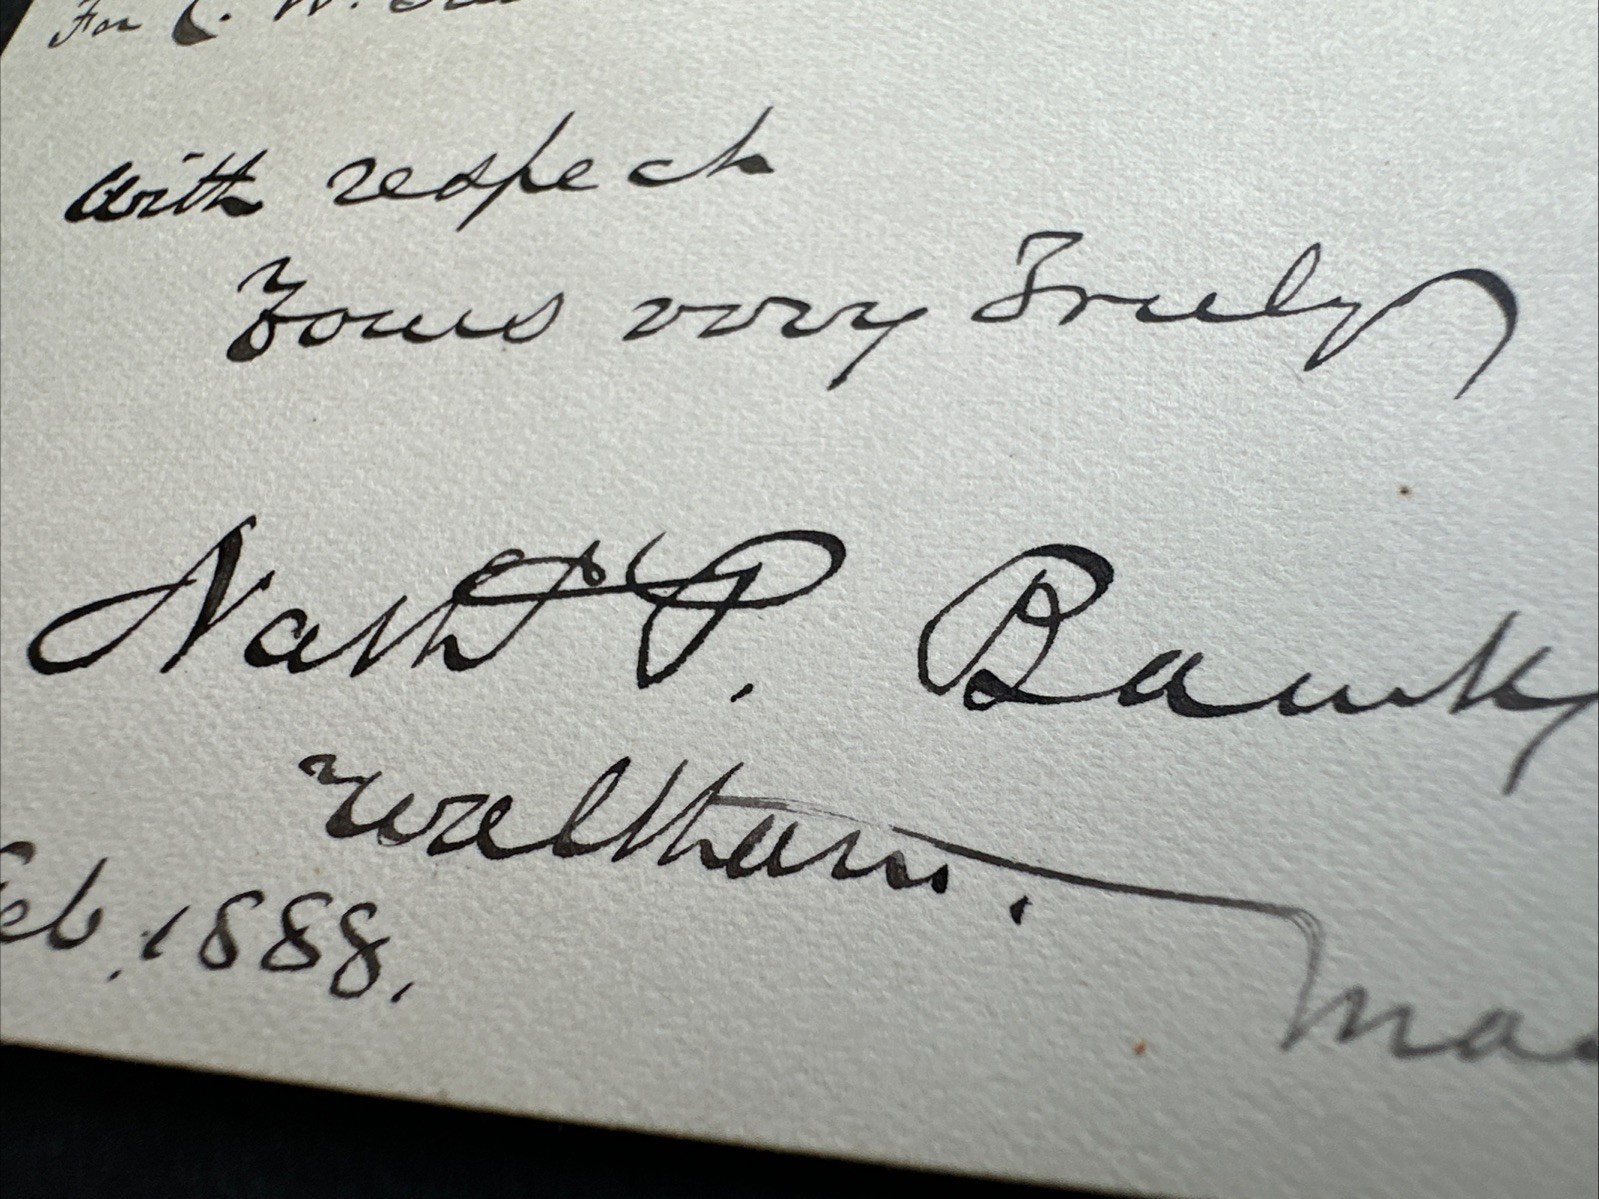 For C. W.
with respect
Yours very Truly
Nathl P. Banks
Waltham.
Feb. 1888.